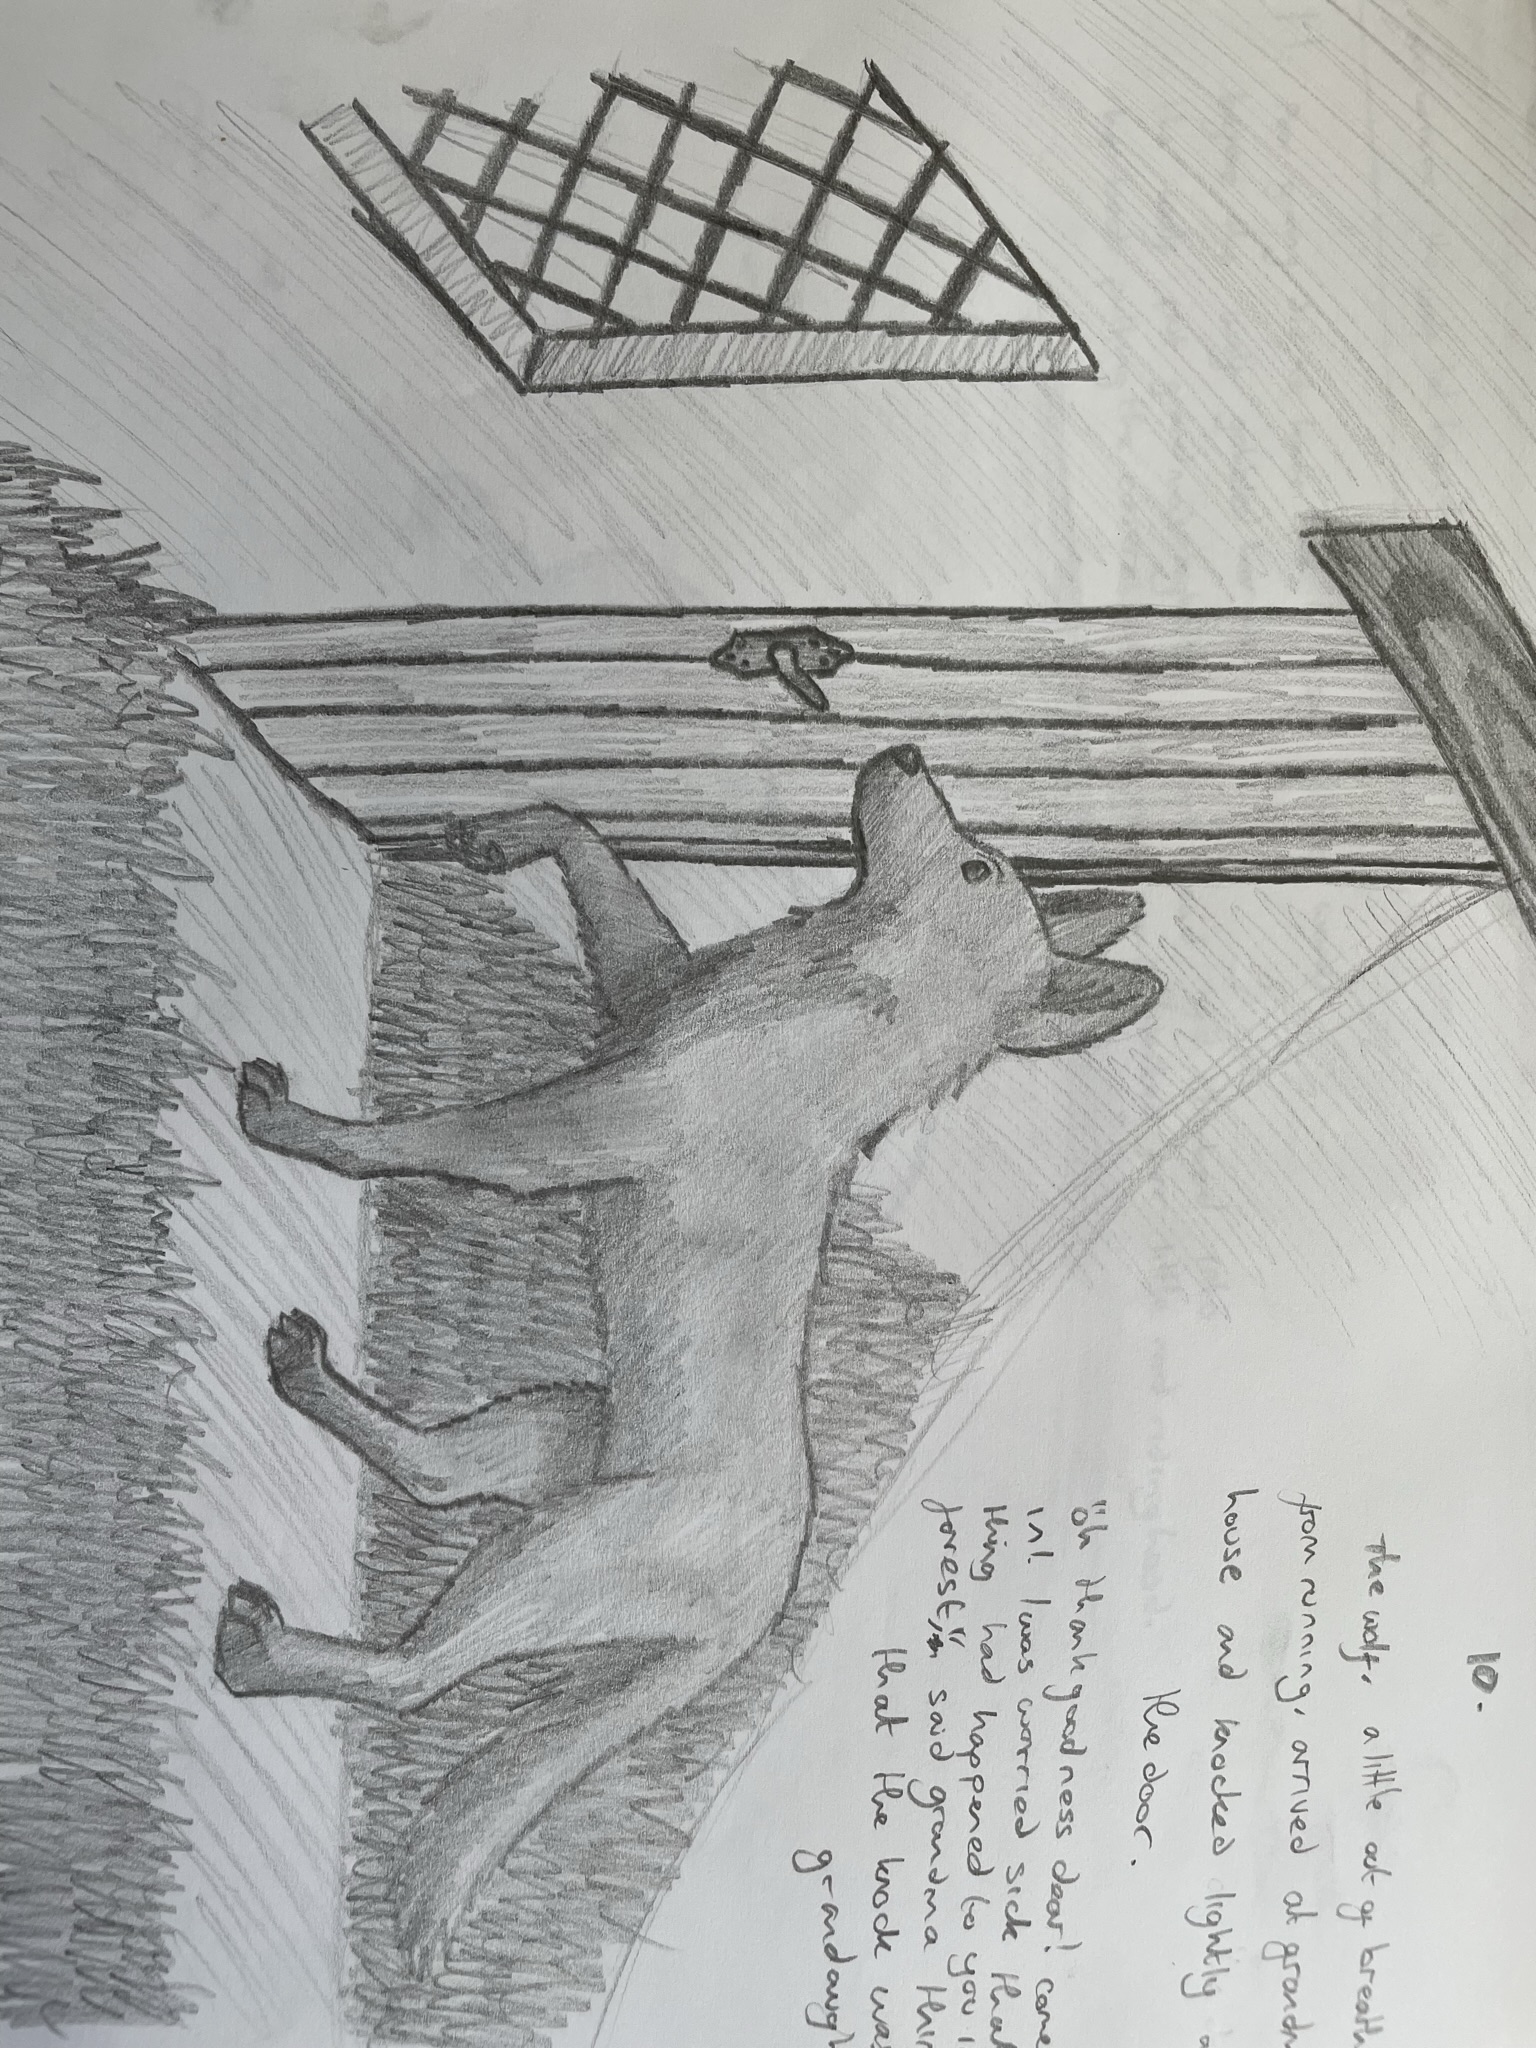 10.
The wolf, a little out of breath
from running, arrived at grandm
house and knocked lightly o
the door.
"Oh thank goodness dear! come
in! I was worried sick that
thing had happened to you i
forest," said grandma thin
that the knock was
grandaugh